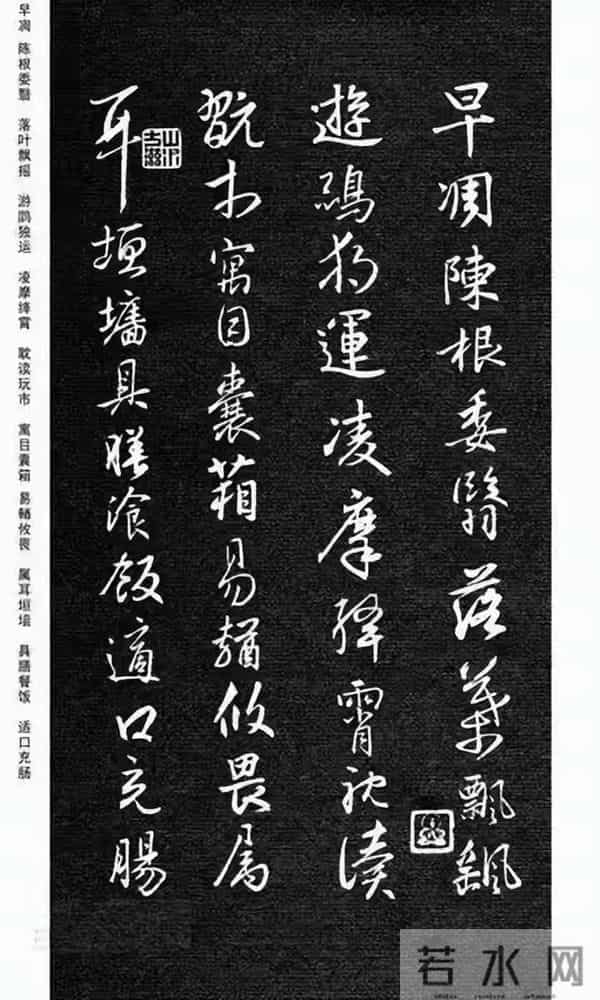 早凋陳根委翳落葉飄颻
遊鵾独運凌摩絳霄耽讀
翫市寓目囊葙易輶攸畏属
耳垣墻具膳飡飯適口充腸
早凋 陈根委翳 落叶飘摇 游鹍独运 凌摩绛霄 耽读玩市 寓目囊箱 易輶攸畏 属耳垣墙 具膳餐饭 适口充肠
若水网